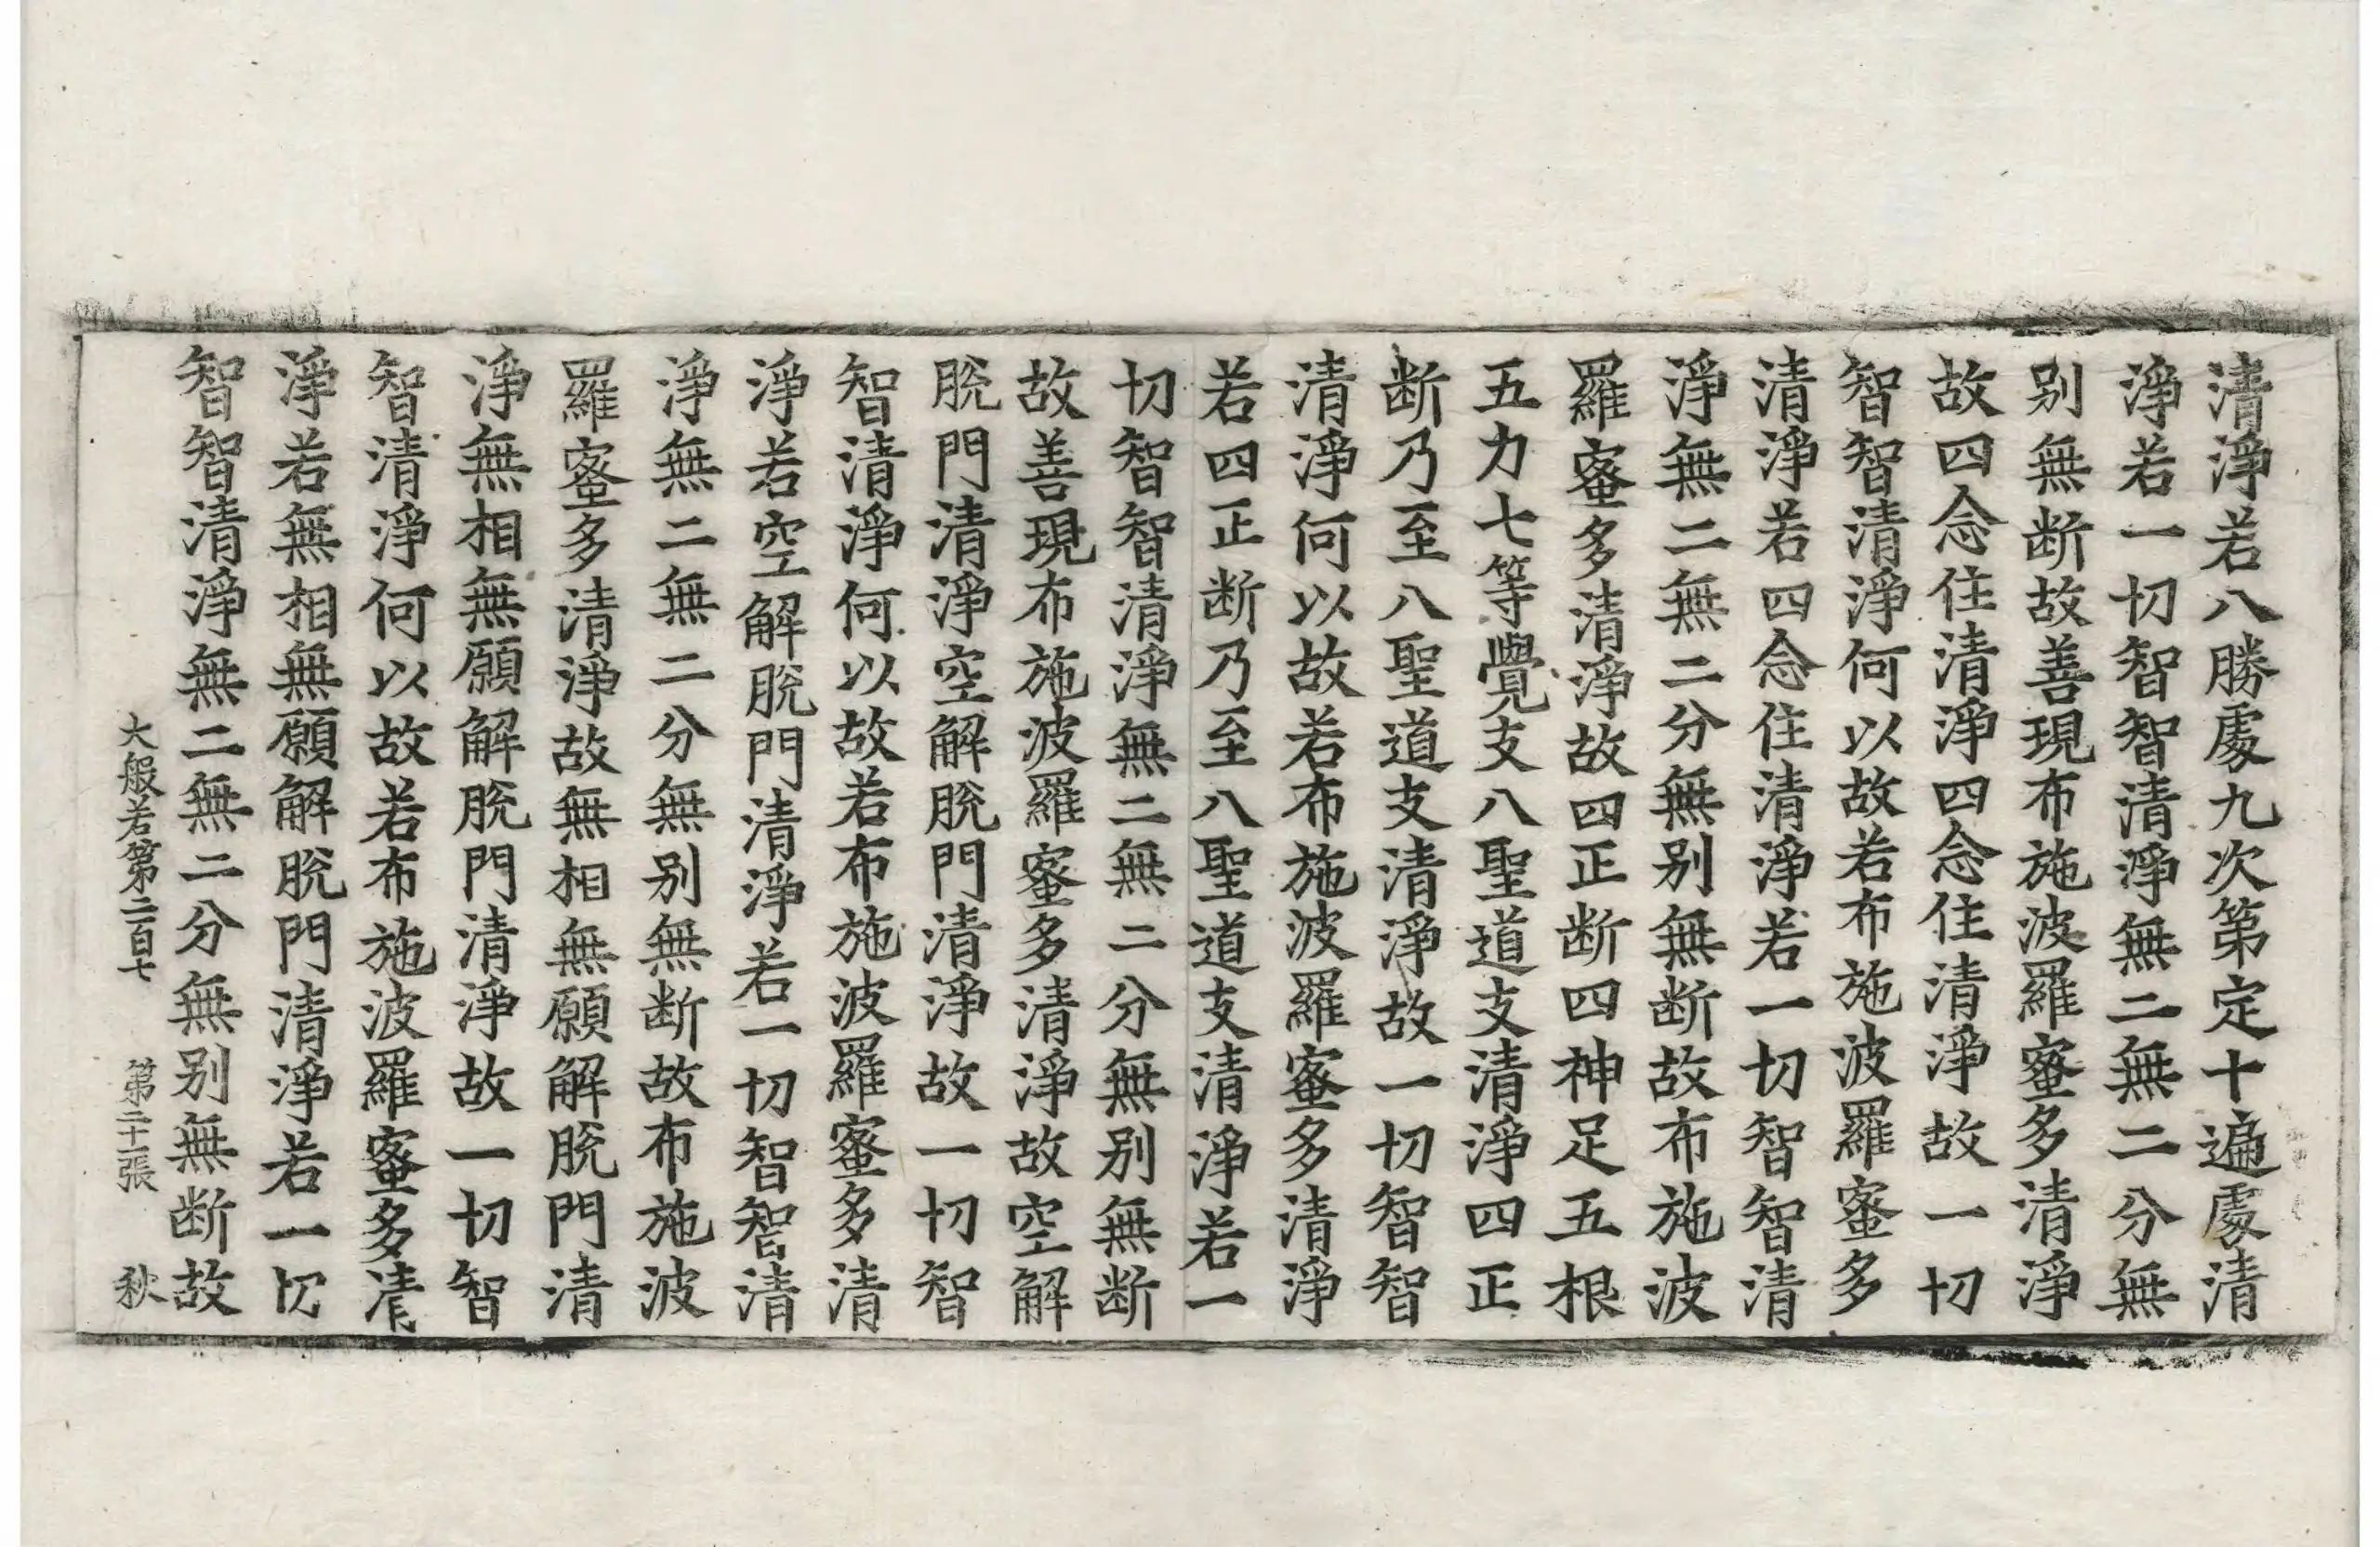 清淨若八勝處九次第定十遍處清
淨若一切智智清淨無二無二分無
别無断故善現布施波羅蜜多清淨
故四念住清淨四念住清淨故一切
智智清淨何以故若布施波羅蜜多
清淨若四念住清淨若一切智智清
淨無二無二分無别無断故布施波
羅蜜多清淨故四正断四神足五根
五力七等覺支八聖道支清淨四正
断乃至八聖道支清淨故一切智智
清淨何以故若布施波羅蜜多清淨
若四正断乃至八聖道支清淨若一
切智智清淨無二無二分無别無断
故善現布施波羅蜜多清淨故空解
脫門清淨空解脫門清淨故一切智
智清淨何以故若布施波羅蜜多清
淨若空解脫門清淨若一切智智清
淨無二無二分無别無断故布施波
羅蜜多清淨故無相無願解脫門清
淨無相無願解脫門清淨故一切智
智清淨何以故若布施波羅蜜多清
淨若無相無願解脫門清淨若一切
智智清淨無二無二分無别無断故
大般若第二百七 第二十二張 秋